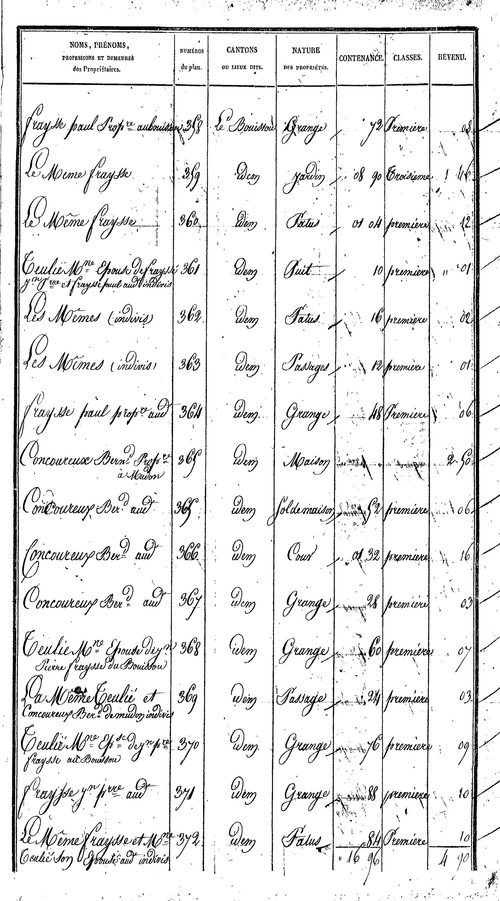 NOMS, PRÉNOMS, PROFESSIONS ET DEMEURES des Propriétaires. NUMÉROS du plan. CANTONS OU LIEUX DITS. NATURE DES PROPRIÉTÉS. CONTENANCE. CLASSES. REVENU.
fraysse paul Propre aubouisson 358 Le Bouisson Grange 72 Première 08
Le Meme fraysse 359 idem jardin 08 90 Troisième 1 46
Le Même fraysse 360 idem Patus 01 04 première 12
Teulié Mne Epouse de fraysse 361 idem Puit 10 première 01
jn pre et fraysse paul aud indivis
Les Mêmes (indivis) 362 idem Patus 16 première 02
Les Mêmes (indivis) 363 idem Passages 12 première 01
fraysse paul propre aud 364 idem Grange 48 Première 06
Concoureux Bernd Propre 365 idem Maison 2 50
à Mudon
Concoureux Berd aud 365 idem Sol de maison 52 première 06
Concoureux Berd aud 366 idem Cour 01 32 première 16
Concoureux Berd aud 367 idem Grange 28 première 03
Teulié Mne Epouse de jn 368 idem Grange 60 première 07
Pierre fraysse du Bouisson
La Même Teulié et 369 idem Passage 24 première 03
Concoureux Berd de mudon indivis
Teulié Mne Epse de jn pre 370 idem Grange 76 première 09
fraysse au Bouisson
fraysse jn pre aud 371 idem Grange 88 première 10
Le Même fraysse et Mne 372 idem Patus 84 Première 10
Teulié son Epouse aud indivis 16 96 4 90